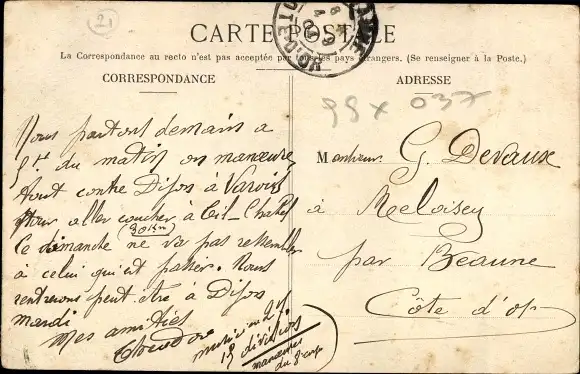 21
CARTE POSTALE
La Correspondance au recto n'est pas acceptée par tous les pays étrangers. (Se renseigner à la Poste.)
CORRESPONDANCE
Nous partons demain a
3h. du matin on manœuvre
tout contre Dijon à Varois
pour aller coucher à Til-Chatel
(30 Km)
Ce dimanche ne va pas ressembler
à celui qui est passer. Nous
rentrerons peut être à Dijon
mardi
Mes amitiés
15 division
manœuvres
du 8e corp
ADRESSE
98 x 037
Monsieur G. Devaux
à Meloisey
par Beaune
Côte d'or